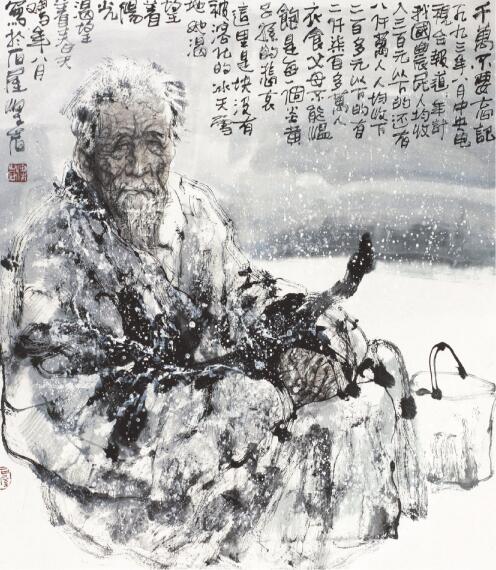 千萬不要忘記
一九九三年八月中央電
視台報道年計
我國農民人均收
入三百元以下的还有
八仟萬人人均收下
二百多元以下的有
二仟柒百多萬人
衣食父母不能溫
飽是每個炎黄
子孫的悲哀
這里是塊没有
被溶化的冰天雪
地她渴
望
着
陽
光
渴望
着春天
年八月
寫於石